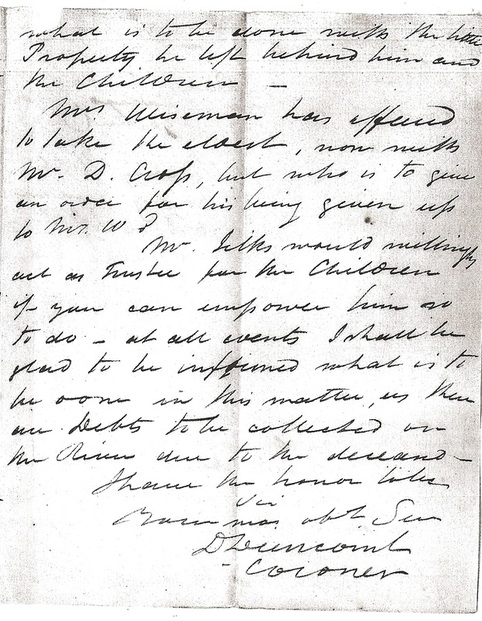 what is to be done with the little
Property he left behind him and
the Children —
Mrs Wiseman has offered
to take the eldest, now with
Mr. D. Cross, but who is to give
an order for his being given up
to Mr. W?
Mr. Jilks would willingly
act as Trustee for the Children
if you can empower him so
to do — at all events I shall be
glad to be informed what is to
be done in this matter, as there
are Debts to be collected on
the River due to the deceased —
I have the honor to be
Sir
Your mos obt. Ser
D Duncomb
Coroner